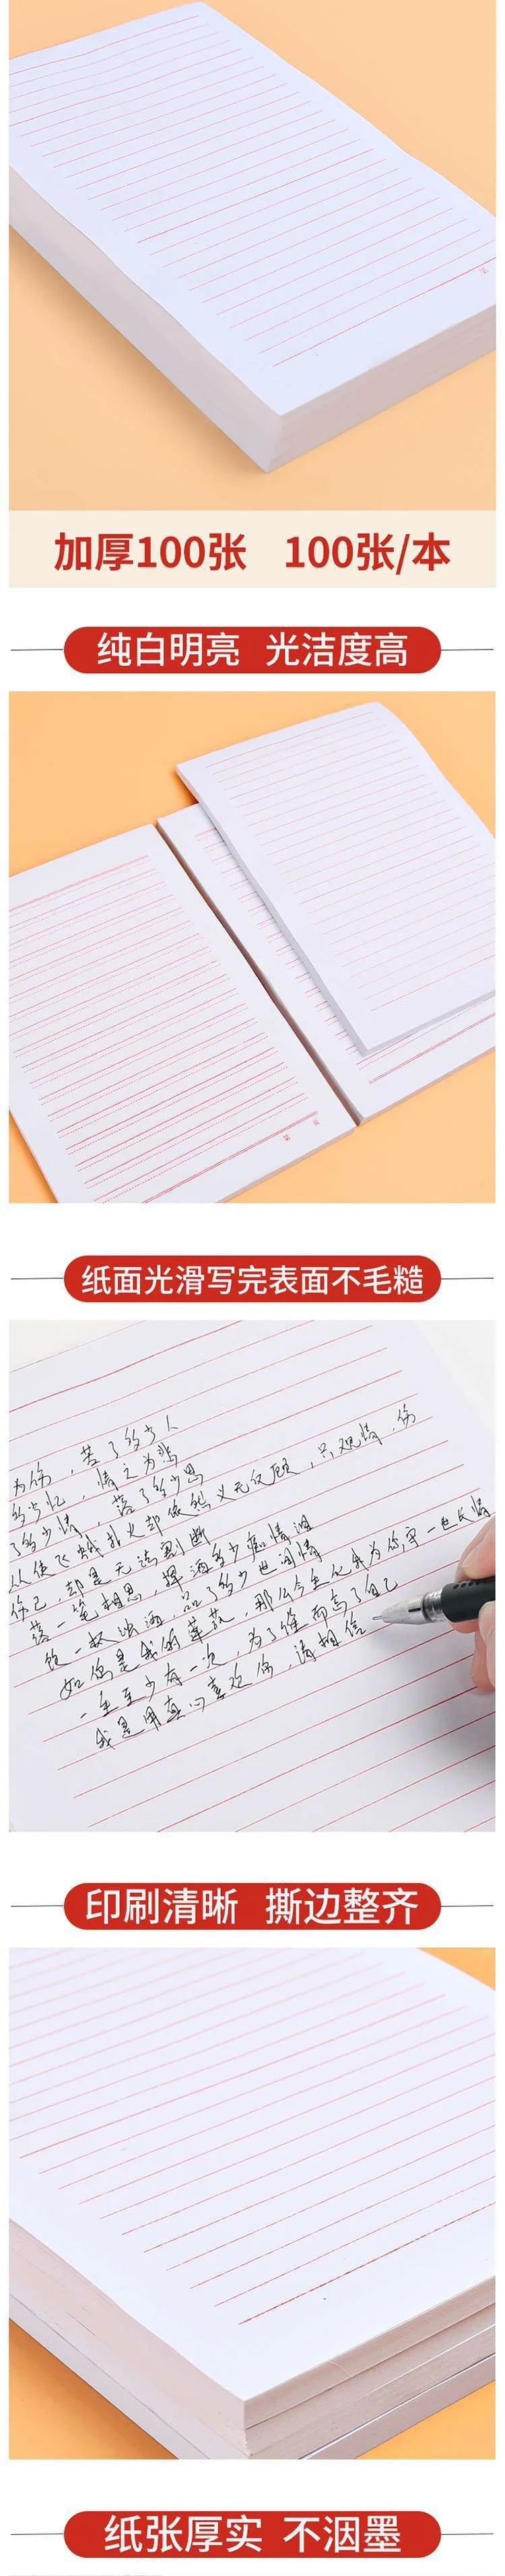 加厚100张 100张/本
纯白明亮 光洁度高
第 页
纸面光滑写完表面不毛糙
为伤，苦了多少人
多少忆，情之为悲
了多少情，落了多少思
从使飞蛾扑火却依然义无反顾，只观情，伤
伤己，却是无法割断
落一笔相思，挥洒多少痴情泪
饮一杯浊酒，品了多少世间情
如伤是我的，那么今生化我为你守一世长情
一生至少有一次，为了谁而忘了自己
我是用真心喜欢你，请相信
印刷清晰 撕边整齐
纸张厚实 不洇墨